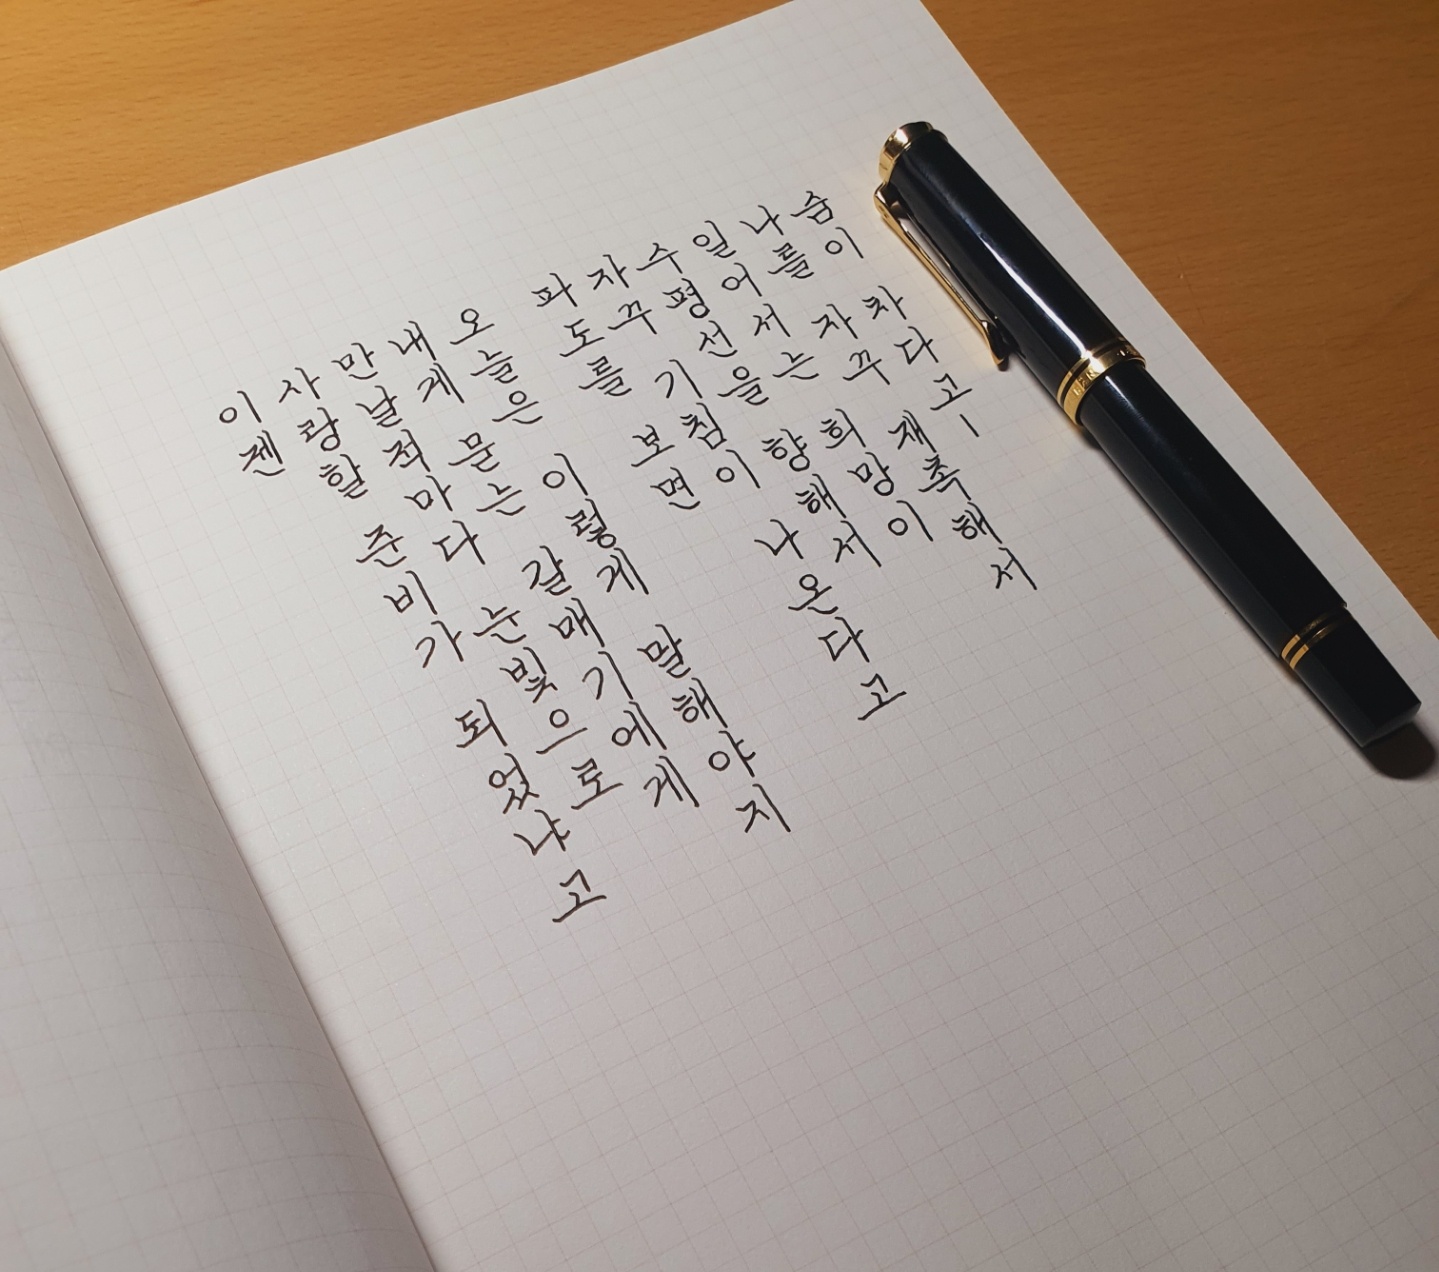 숨이 차다고ㅡ
나를 자꾸 재촉해서
일어서는 희망이
수평선을 향해서
자꾸 기침이 나온다고
파도를 보면
오늘은 이렇게 말해야지
내게 묻는 갈매기에게
만날 적마다 눈빛으로
사랑할 준비가 되었냐고
이젠